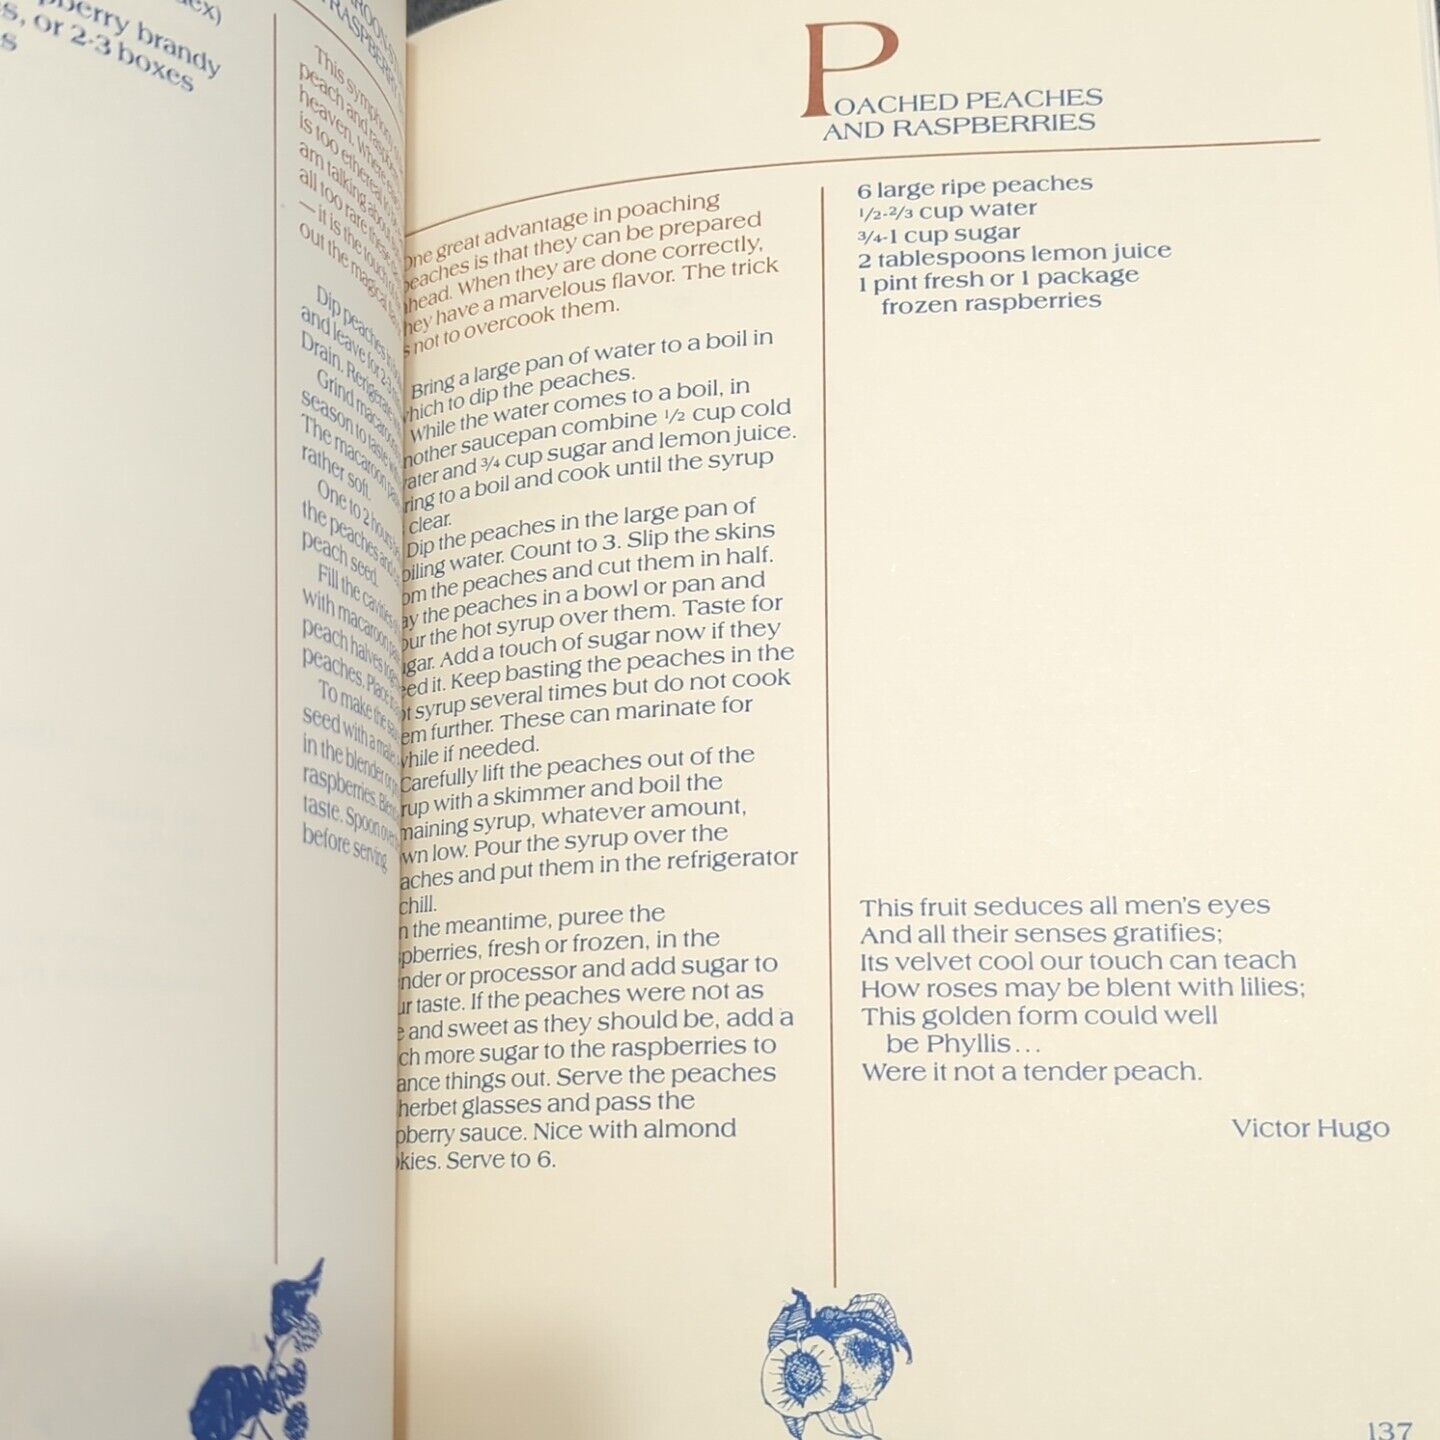 ex)
berry brandy
es, or 2-3 boxes
s
This symphony
peach and
heaven. Where
is too ethereal to
am talking about
all too rare these
— it is the touch of
out the magical
Dip peaches in
and leave for 2-3
Drain. Refrigerate
Grind macaroons
season to taste
The macaroon
rather soft.
One to 2 hours
the peaches and
peach seed.
Fill the cavities
with macaroon
peach halves
peaches. Place
To make the
seed with a
in the blender or
raspberries. Blend
taste. Spoon over
before serving
POACHED PEACHES
AND RASPBERRIES
One great advantage in poaching
peaches is that they can be prepared
ahead. When they are done correctly,
they have a marvelous flavor. The trick
is not to overcook them.
Bring a large pan of water to a boil in
which to dip the peaches.
While the water comes to a boil, in
nother saucepan combine 1/2 cup cold
ater and 3/4 cup sugar and lemon juice.
ring to a boil and cook until the syrup
clear.
Dip the peaches in the large pan of
oiling water. Count to 3. Slip the skins
om the peaches and cut them in half.
ay the peaches in a bowl or pan and
our the hot syrup over them. Taste for
ugar. Add a touch of sugar now if they
eed it. Keep basting the peaches in the
ot syrup several times but do not cook
em further. These can marinate for
while if needed.
Carefully lift the peaches out of the
rup with a skimmer and boil the
maining syrup, whatever amount,
wn low. Pour the syrup over the
aches and put them in the refrigerator
chill.
n the meantime, puree the
spberries, fresh or frozen, in the
nder or processor and add sugar to
ur taste. If the peaches were not as
e and sweet as they should be, add a
ch more sugar to the raspberries to
ance things out. Serve the peaches
herbet glasses and pass the
pberry sauce. Nice with almond
okies. Serve to 6.
6 large ripe peaches
1/2-2/3 cup water
3/4-1 cup sugar
2 tablespoons lemon juice
1 pint fresh or 1 package
frozen raspberries
This fruit seduces all men's eyes
And all their senses gratifies;
Its velvet cool our touch can teach
How roses may be blent with lilies;
This golden form could well
be Phyllis...
Were it not a tender peach.
Victor Hugo
137